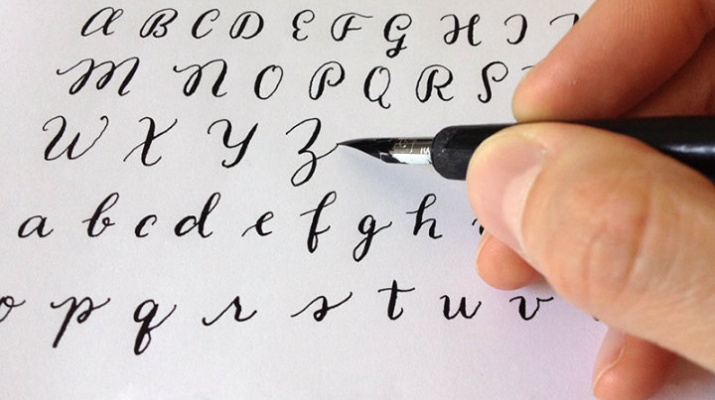 A B C D E F G H I
M N O P Q R S
W X Y Z
a b c d e f g h
o p q r s t u v